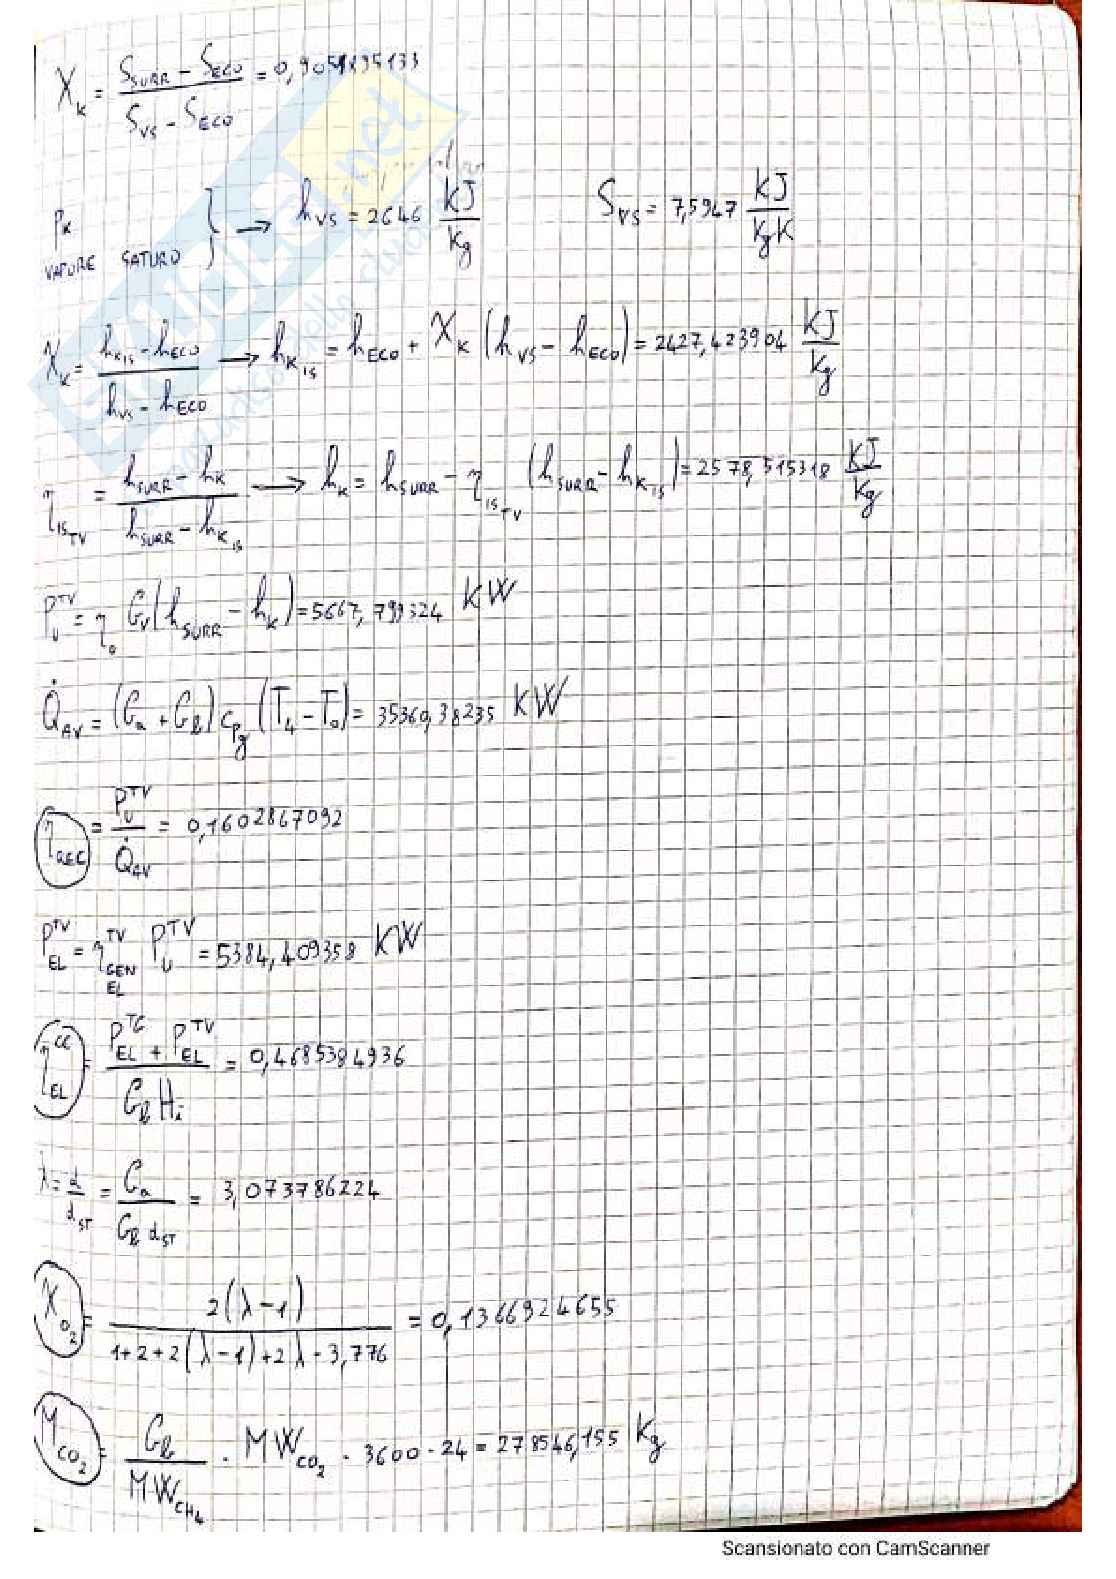 X_K = (S_SURR - S_ECO) / (S_VS - S_ECO) = 0,9051835133
P_K VAPORE SATURO } → h_VS = 2646 KJ/Kg S_VS = 7,5947 KJ/KgK
X_K = (h_K_IS - h_ECO) / (h_VS - h_ECO) → h_K_IS = h_ECO + X_K (h_VS - h_ECO) = 2427,423904 KJ/Kg
η_IS_TV = (h_SURR - h_K) / (h_SURR - h_K_IS) → h_K = h_SURR - η_IS_TV (h_SURR - h_K_IS) = 2578,515318 KJ/Kg
P_U^TV = η_o G_V (h_SURR - h_K) = 5667,799324 KW
Q̇_AV = (G_a + G_b) c_p_g (T_4 - T_0) = 35360,38235 KW
η_REC = P_U^TV / Q̇_AV = 0,1602867092
P_EL^TV = η_GEN EL^TV P_U^TV = 5384,409358 KW
η_EL^CC = (P_EL^TG + P_EL^TV) / (G_b H_i) = 0,4685384936
λ = α / α_ST = G_a / (G_b α_ST) = 3,073786224
X_O2 = 2(λ - 1) / (1 + 2 + 2(λ - 1) + 2λ · 3,776) = 0,1366924655
M_CO2 = G_b / MW_CH4 · MW_CO2 · 3600 · 24 = 278546,155 Kg
Scansionato con CamScanner